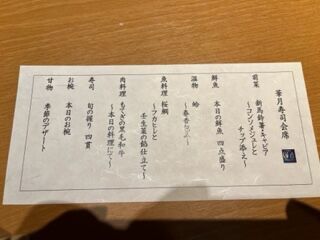 華月寿司会席
前菜 新馬鈴薯・キャビア
〜コンソメジュレと
チップ添え〜
鮮魚 本日の鮮魚 四点盛り
温物 蛤
魚料理 桜鯛
〜フカヒレと
壬生菜の餡仕立て〜
肉料理 もてぎの黒毛和牛
〜本日の料理にて〜
寿司 旬の握り 四貫
お椀 本日のお椀
甘物 季節のデザート